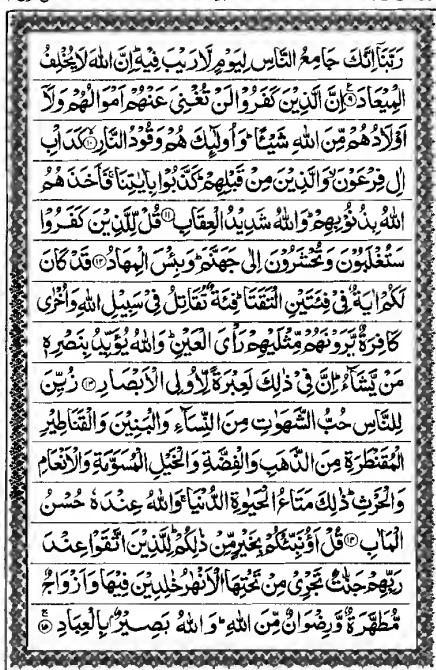 رَبَّنَاۤ اِنَّكَ جَامِعُ النَّاسِ لِيَوْمٍ لَّا رَيْبَ فِيْهِ ؕ اِنَّ اللّٰهَ لَا يُخْلِفُ
الْمِيْعَادَ ۹ اِنَّ الَّذِيْنَ كَفَرُوْا لَنْ تُغْنِىَ عَنْهُمْ اَمْوَالُهُمْ وَلَاۤ
اَوْلَادُهُمْ مِّنَ اللّٰهِ شَيْـًٔا ؕ وَاُولٰٓئِكَ هُمْ وَقُوْدُ النَّارِ ۱۰ كَدَاْبِ
اٰلِ فِرْعَوْنَ ۙ وَالَّذِيْنَ مِنْ قَبْلِهِمْ ؕ كَذَّبُوْا بِاٰيٰتِنَا ۚ فَاَخَذَهُمُ
اللّٰهُ بِذُنُوْبِهِمْ ؕ وَاللّٰهُ شَدِيْدُ الْعِقَابِ ۱۱ قُلْ لِّلَّذِيْنَ كَفَرُوْا
سَتُغْلَبُوْنَ وَتُحْشَرُوْنَ اِلٰى جَهَنَّمَ ؕ وَبِئْسَ الْمِهَادُ ۱۲ قَدْ كَانَ
لَكُمْ اٰيَةٌ فِىْ فِئَتَيْنِ الْتَقَتَا ؕ فِئَةٌ تُقَاتِلُ فِىْ سَبِيْلِ اللّٰهِ وَاُخْرٰى
كَافِرَةٌ يَّرَوْنَهُمْ مِّثْلَيْهِمْ رَاْىَ الْعَيْنِ ؕ وَاللّٰهُ يُؤَيِّدُ بِنَصْرِهٖ
مَنْ يَّشَآءُ ؕ اِنَّ فِىْ ذٰلِكَ لَعِبْرَةً لِّاُولِى الْاَبْصَارِ ۱۳ زُيِّنَ
لِلنَّاسِ حُبُّ الشَّهَوٰتِ مِنَ النِّسَآءِ وَالْبَنِيْنَ وَالْقَنَاطِيْرِ
الْمُقَنْطَرَةِ مِنَ الذَّهَبِ وَالْفِضَّةِ وَالْخَيْلِ الْمُسَوَّمَةِ وَالْاَنْعَامِ
وَالْحَرْثِ ؕ ذٰلِكَ مَتَاعُ الْحَيٰوةِ الدُّنْيَا ۚ وَاللّٰهُ عِنْدَهٗ حُسْنُ
الْمَاٰبِ ۱۴ قُلْ اَؤُنَبِّئُكُمْ بِخَيْرٍ مِّنْ ذٰلِكُمْ ؕ لِلَّذِيْنَ اتَّقَوْا عِنْدَ
رَبِّهِمْ جَنّٰتٌ تَجْرِىْ مِنْ تَحْتِهَا الْاَنْهٰرُ خٰلِدِيْنَ فِيْهَا وَاَزْوَاجٌ
مُّطَهَّرَةٌ وَّرِضْوَانٌ مِّنَ اللّٰهِ ؕ وَاللّٰهُ بَصِيْرٌۢ بِالْعِبَادِ ۱۵